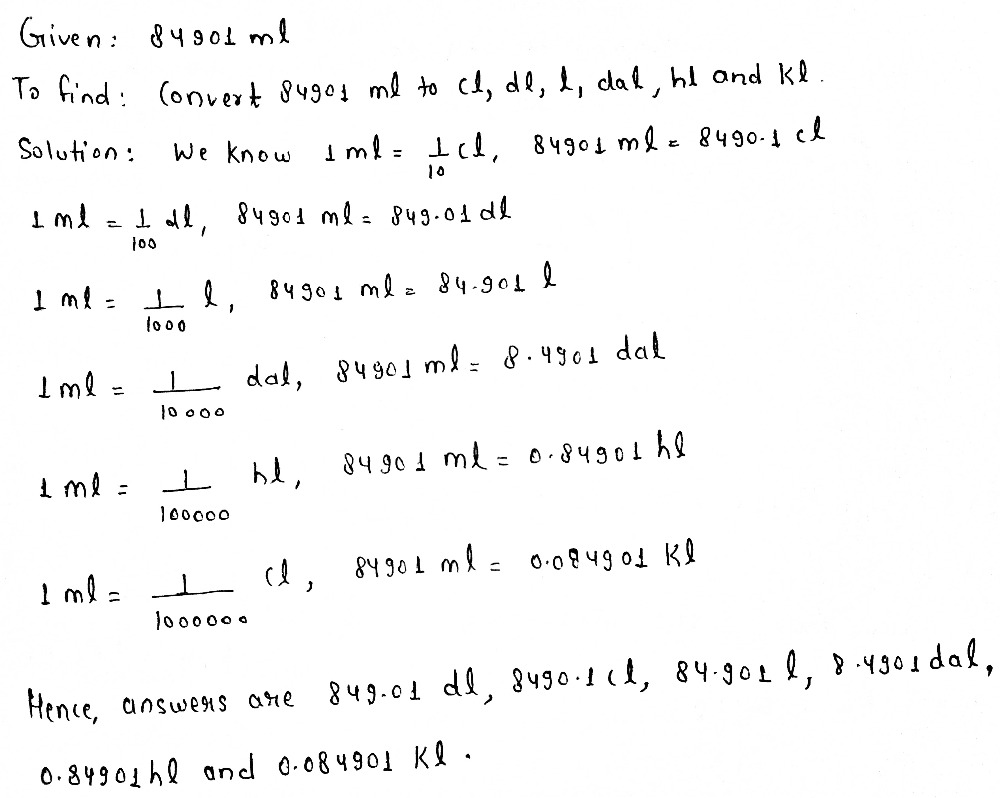 Given: 84901 ml
To find: Convert 84901 ml to cl, dl, l, dal, hl and Kl.
Solution: We know 1 ml = 1/10 cl, 84901 ml = 8490.1 cl
1 ml = 1/100 dl, 84901 ml = 849.01 dl
1 ml = 1/1000 l, 84901 ml = 84.901 l
1 ml = 1/10000 dal, 84901 ml = 8.4901 dal
1 ml = 1/100000 hl, 84901 ml = 0.84901 hl
1 ml = 1/1000000 cl, 84901 ml = 0.084901 Kl
Hence, answers are 849.01 dl, 8490.1 cl, 84.901 l, 8.4901 dal,
0.84901 hl and 0.084901 Kl.